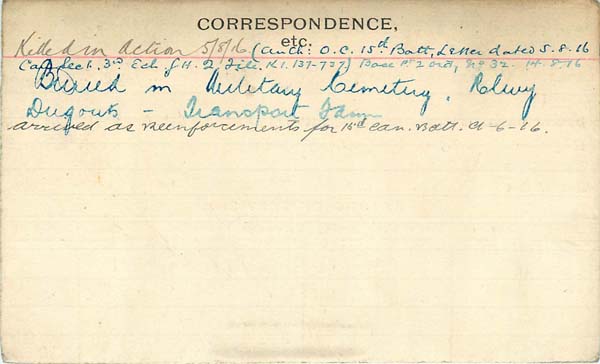 CORRESPONDENCE,
etc.
Killed in Action 5/8/16 (Auth: O.C. 15th Batt, Letter dated 5.8.16
Can. Sect. 3rd Ech. G.H.Q. File. K1.137-737) Base Pt 2 Ord, No 32. 14.8.16
Buried in Military Cemetery, Rlwy
Dugouts - Transport Farm
arrived as reinforcements for 15th Can. Batt. 9-6-16.